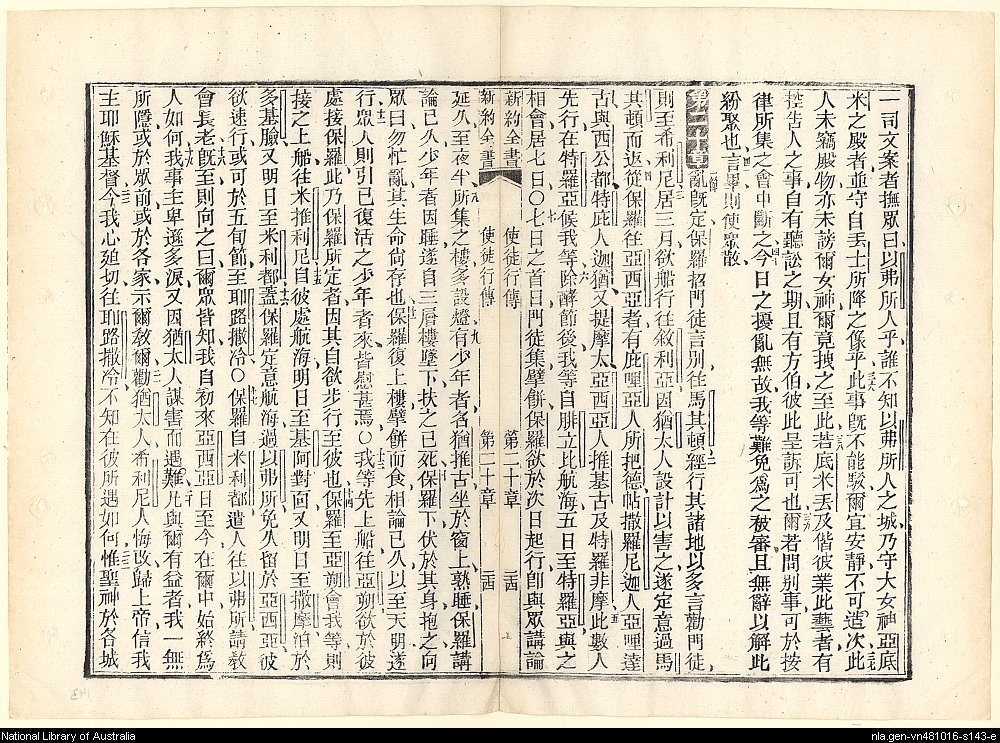 一司文案者撫眾曰以弗所人乎誰不知以弗所人之城乃守大女神亞底
米之殿者並守自丟士所降之像乎此事既不能駁爾宜安靜不可造次此
人未竊殿物亦未謗爾女神爾竟拽之至此若底米丟及偕彼業此藝者有
控告人之事自有聽訟之期且有方伯彼此呈訴可也爾若問別事可於按
律所集之會中斷之今日之擾亂無故我等難免為之被審且無辭以解此
紛聚也言畢則使眾散
第二十章亂既定保羅招門徒言別往馬其頓經行其諸地以多言勸門徒
則至希利尼居三月欲船行往敘利亞因猶太人設計以害之遂定意過馬
其頓而返從保羅往亞西亞者有庇哩亞人所把德帖撒羅尼迦人亞哩達
古與西公都特庇人迦猶又提摩太亞西亞人推基古及特羅非摩此數人
先行在特羅亞候我等除酵節後我等自腓立比航海五日至特羅亞與之
相會居七日〇七日之首日門徒集擘餅保羅欲於次日起行卽與眾講論
新約全書 使徒行傳 第二十章 三四
新約全書 使徒行傳 第二十章 三四
延久至夜半所集之樓多設燈有少年者名猶推古坐於窗上熟睡保羅講
論已久少年者因睡遂自三層樓墜下扶之已死保羅下伏於其身抱之向
眾曰勿忙亂其生命尚存也保羅復上樓擘餅而食相論已久以至天明遂
行眾人則引已復活之少年者來皆慰甚焉〇我等先上船往亞朔欲於彼
處接保羅此乃保羅所定者因其自欲步行至彼也保羅至亞朔會我等則
接之上船往米推利尼自彼處航海明日至基阿對面又明日至撒摩泊於
多基臉又明日至米利都蓋保羅定意航海過以弗所免久留於亞西亞彼
欲速行或可於五旬節至耶路撒冷〇保羅自米利都遣人往以弗所請教
會長老既至則向之曰爾眾皆知我自初來亞西亞日至今在爾中始終為
人如何我事主卑遜多淚又因猶太人謀害而遇難凡與爾有益者我一無
所隱或於眾前或於各家示爾教爾勸猶太人希利尼人悔改歸上帝信我
主耶穌基督今我心迫切往耶路撒冷不知在彼所遇如何惟聖神於各城
National Library of Australia
nla.gen-vn481016-s143-e